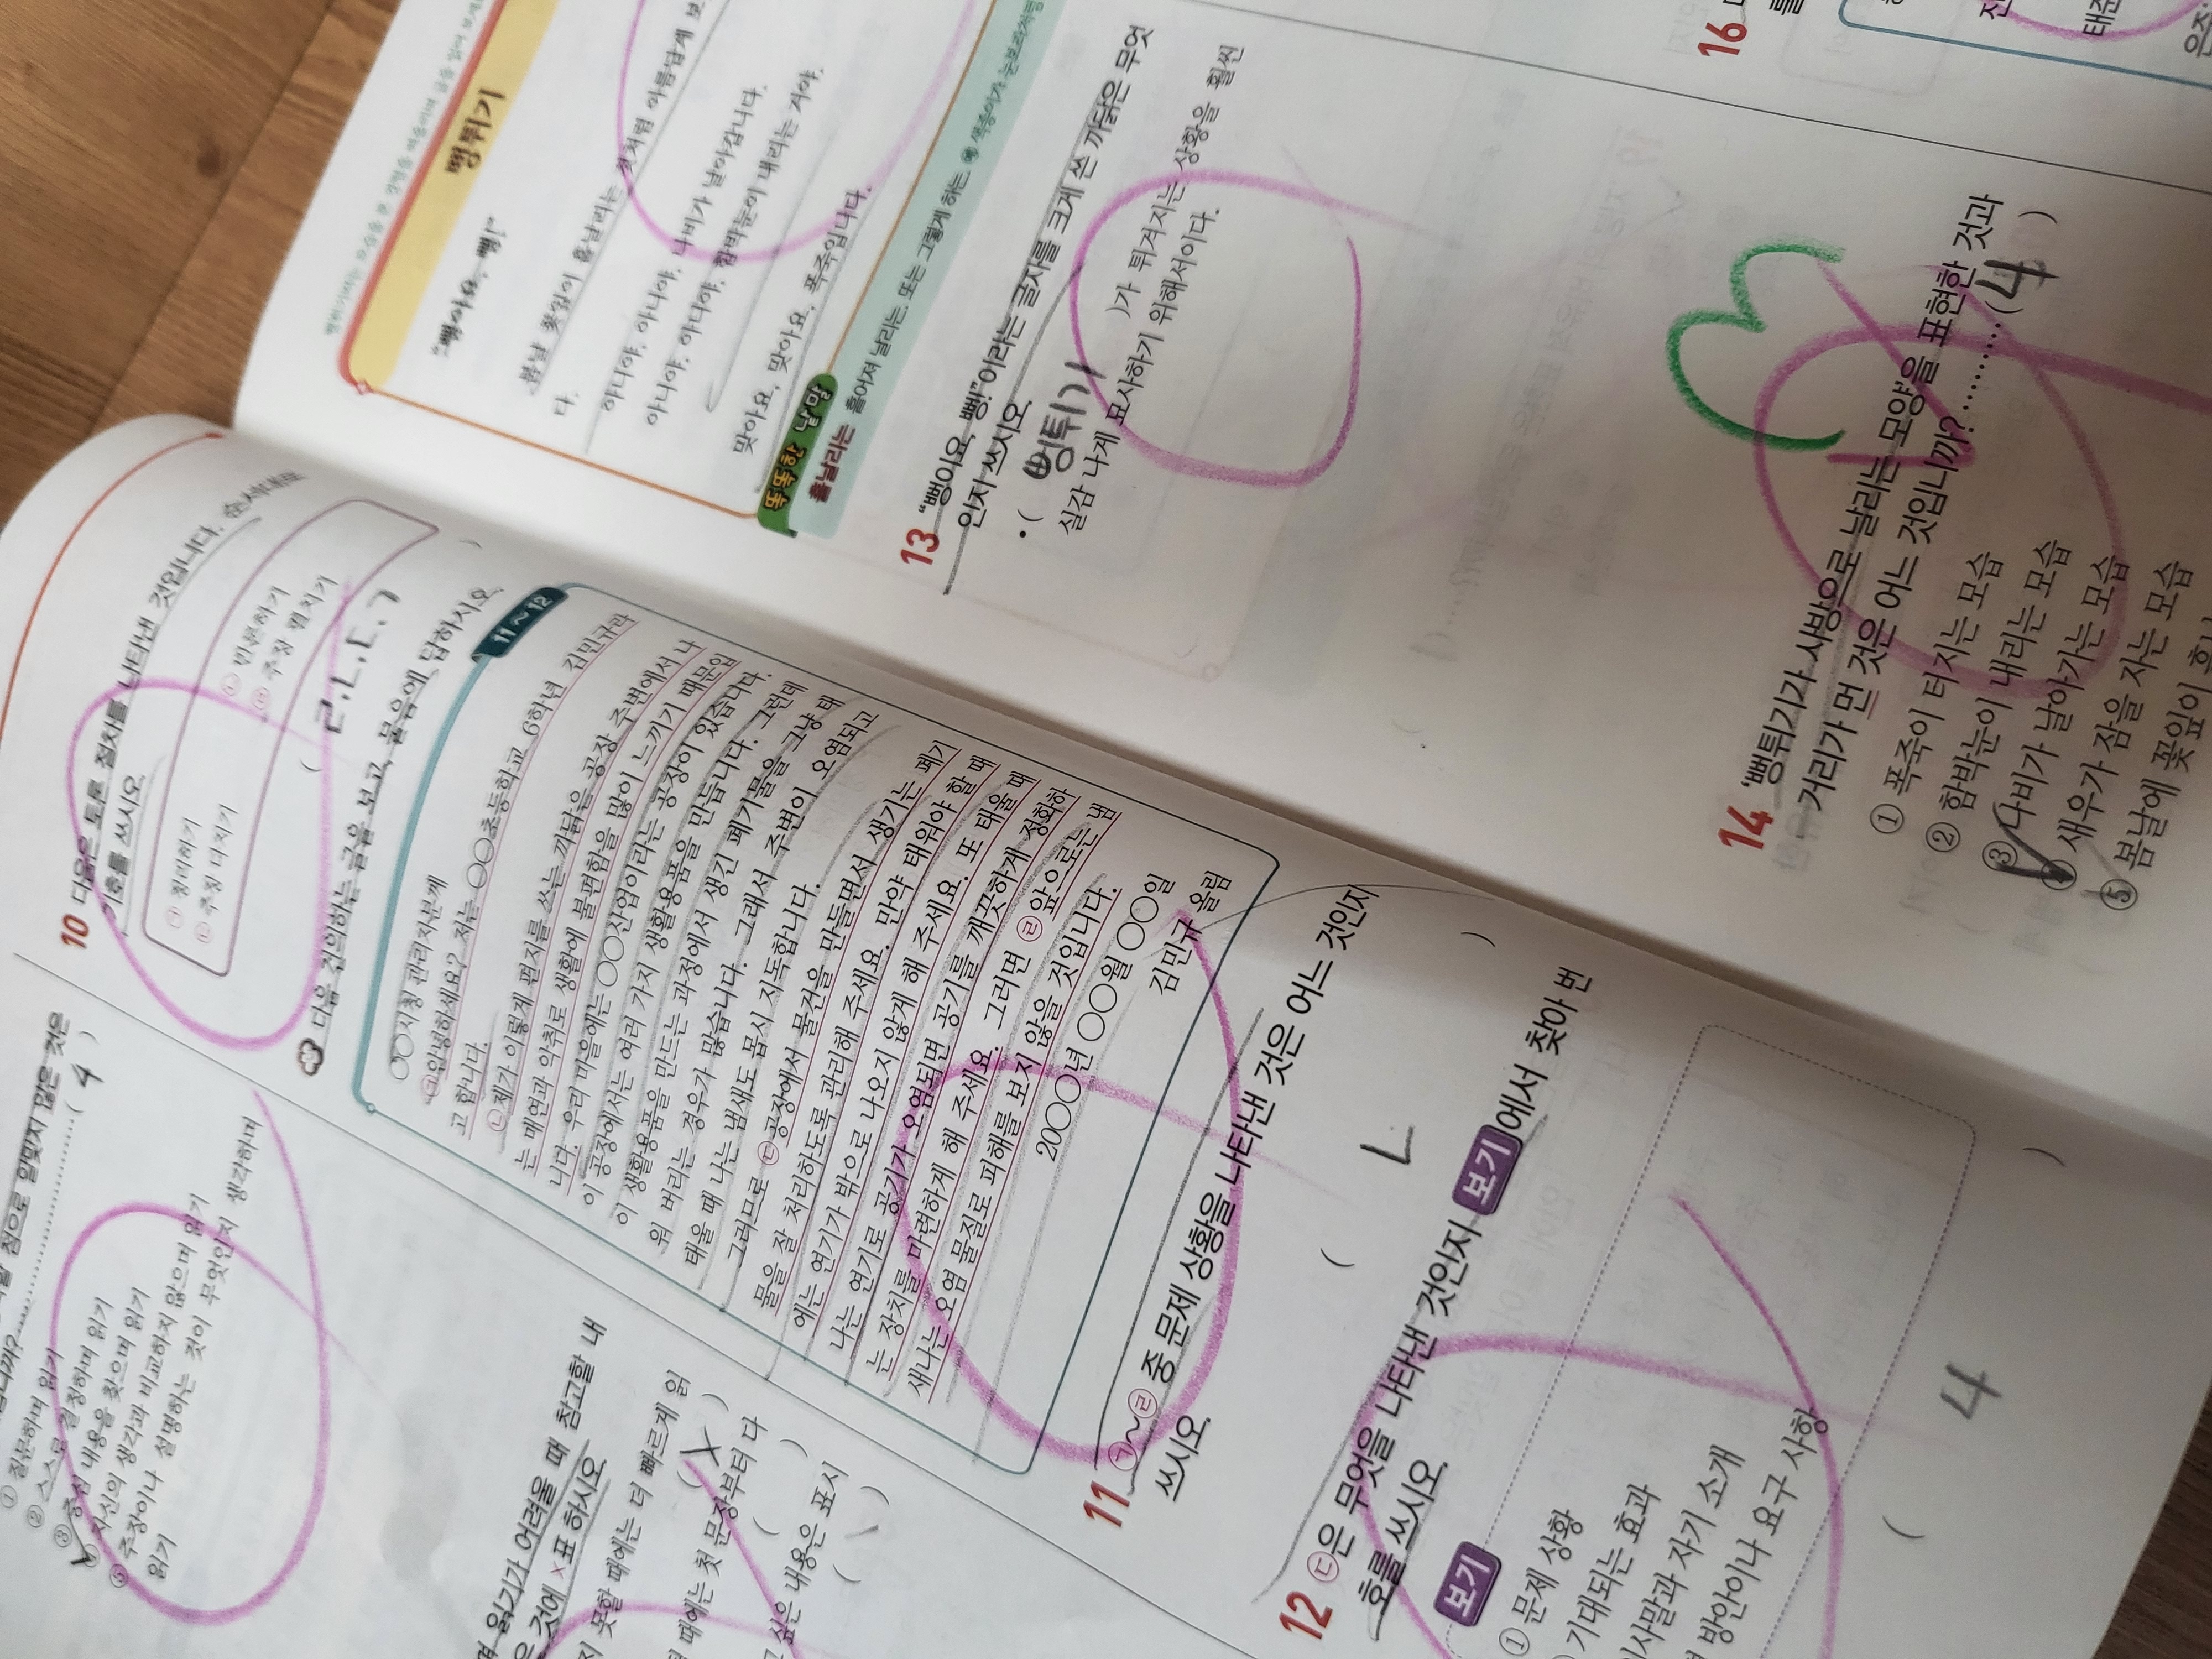 않은 것은
( 4 )
① 질문하며 읽기
② 스스로 결정하며 읽기
③ 중심 내용을 찾으며 읽기
④ 자신의 생각과 비교하지 않으며 읽기
⑤ 주장이나 설명하는 것이 무엇인지 생각하며
읽기
읽기가 어려울 때 참고할 내
은 것에 ×표 하시오.
못할 때에는 더 빠르게 읽
( X )
때에는 첫 문장부터 다
( )
싶은 내용은 표시
( )
10 다음은 토론 절차를 나타낸 것입니다. 순서대로
기호를 쓰시오.
㉠ 정리하기
㉡ 반론하기
㉢ 주장 다지기
㉣ 주장 펼치기
( ㄹ, ㄴ, ㄷ, ㄱ )
다음 건의하는 글을 보고, 물음에 답하시오.
11~12
○○시청 관리자분께
㉠안녕하세요? 저는 ○○초등학교 6학년 김민규라
고 합니다.
㉡제가 이렇게 편지를 쓰는 까닭은 공장 주변에서 나
는 매연과 악취로 생활에 불편함을 많이 느끼기 때문입
니다. 우리 마을에는 ○○산업이라는 공장이 있습니다.
이 공장에서는 여러 가지 생활용품을 만듭니다. 그런데
이 생활용품을 만드는 과정에서 생긴 폐기물을 그냥 태
워 버리는 경우가 많습니다. 그래서 주변이 오염되고
태울 때 나는 냄새도 몹시 지독합니다.
그러므로 ㉢공장에서 물건을 만들면서 생기는 폐기
물을 잘 처리하도록 관리해 주세요. 만약 태워야 할 때
에는 연기가 밖으로 나오지 않게 해 주세요. 또 태울 때
나는 연기로 공기가 오염되면 공기를 깨끗하게 정화하
는 장치를 마련하게 해 주세요. 그러면 ㉣앞으로는 냄
새나는 오염 물질로 피해를 보지 않을 것입니다.
20○○년 ○○월 ○○일
김민규 올림
11 ㉠~㉣ 중 문제 상황을 나타낸 것은 어느 것인지
쓰시오.
( ㄴ )
12 ㉢은 무엇을 나타낸 것인지 보기에서 찾아 번
호를 쓰시오.
보기
① 문제 상황
기대되는 효과
인사말과 자기 소개
방안이나 요구 사항
( 4 )
뻥튀기
"뻥이요, 뻥!"
봄날 꽃잎이 흩날리는 것처럼 아름답게 보
다.
아니야, 아니야, 나비가 날아갑니다.
아니야, 아니야, 함박눈이 내리는 거야.
맞아요, 맞아요, 폭죽입니다.
똑똑한 낱말
흩날리는 흩어져 날리는. 또는 그렇게 하는. 예 색종이가 눈보라처럼
13 "뻥이요, 뻥!"이라는 글자를 크게 쓴 까닭은 무엇
인지 쓰시오.
• ( 뻥튀기 )가 튀겨지는 상황을 훨씬
실감 나게 묘사하기 위해서이다.
14 '뻥튀기가 사방으로 날리는 모양'을 표현한 것과
거리가 먼 것은 어느 것입니까? ( 4 )
① 폭죽이 터지는 모습
② 함박눈이 내리는 모습
③ 나비가 날아가는 모습
④ 새우가 잠을 자는 모습
⑤ 봄날에 꽃잎이
16
를
태준